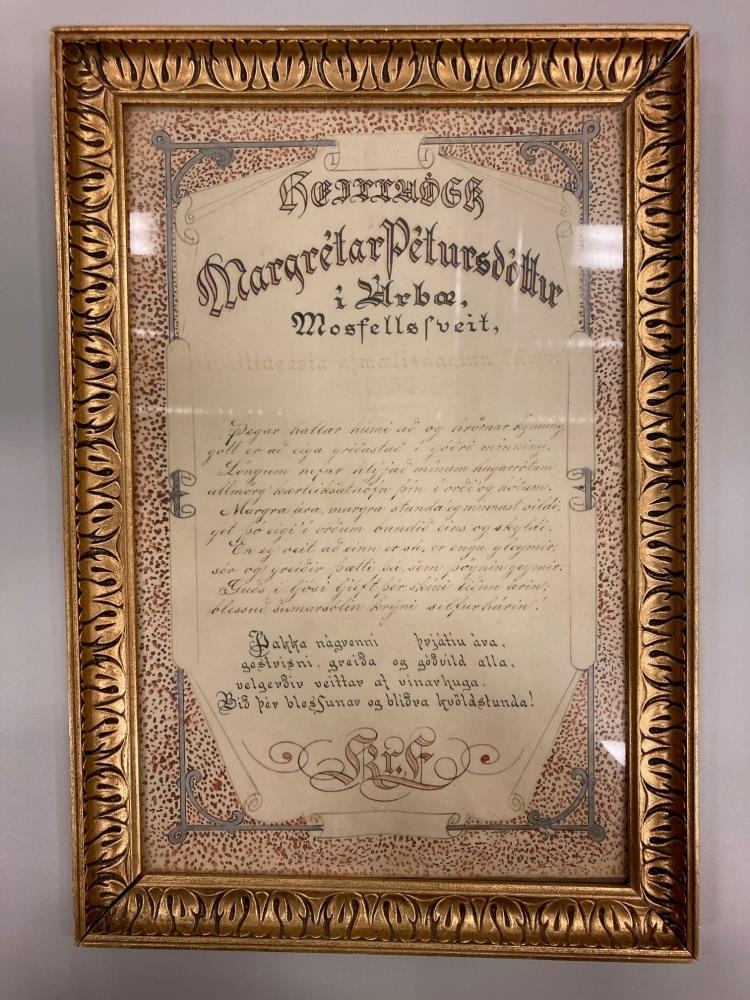 HEILLAÓSK
Margrétar Pétursdóttir
í Árbæ,
Mosfellssveit,
á áttugasta afmælisdaginn 26. apr.
Þegar hallar húmi að og hrörnar kynning,
gott er að eiga griðastað í góðri minning.
Löngum hefur hlýjað mínum hugarrótum
allmörg kærleiks þín í orði og hótum.
Margra ára, margra stunda eg minnast vildi,
get þó eigi í orðum bundið eins og skyldi,
En eg veit að einn er sá, er engu gleymir,
sér og greiðir þætti þá, sem þögnin geymir.
Guðs í ljósi ljúft þér skíni liðnu árin;
blessuð sumarsólin krýni silfurhárin!
Þakka nágrenni þrjátíu ára,
gestrisni, greiða og góðvild alla,
velgerðir veittar af vinarhuga.
Bið þér blessunar og blíðra kvöldstunda!